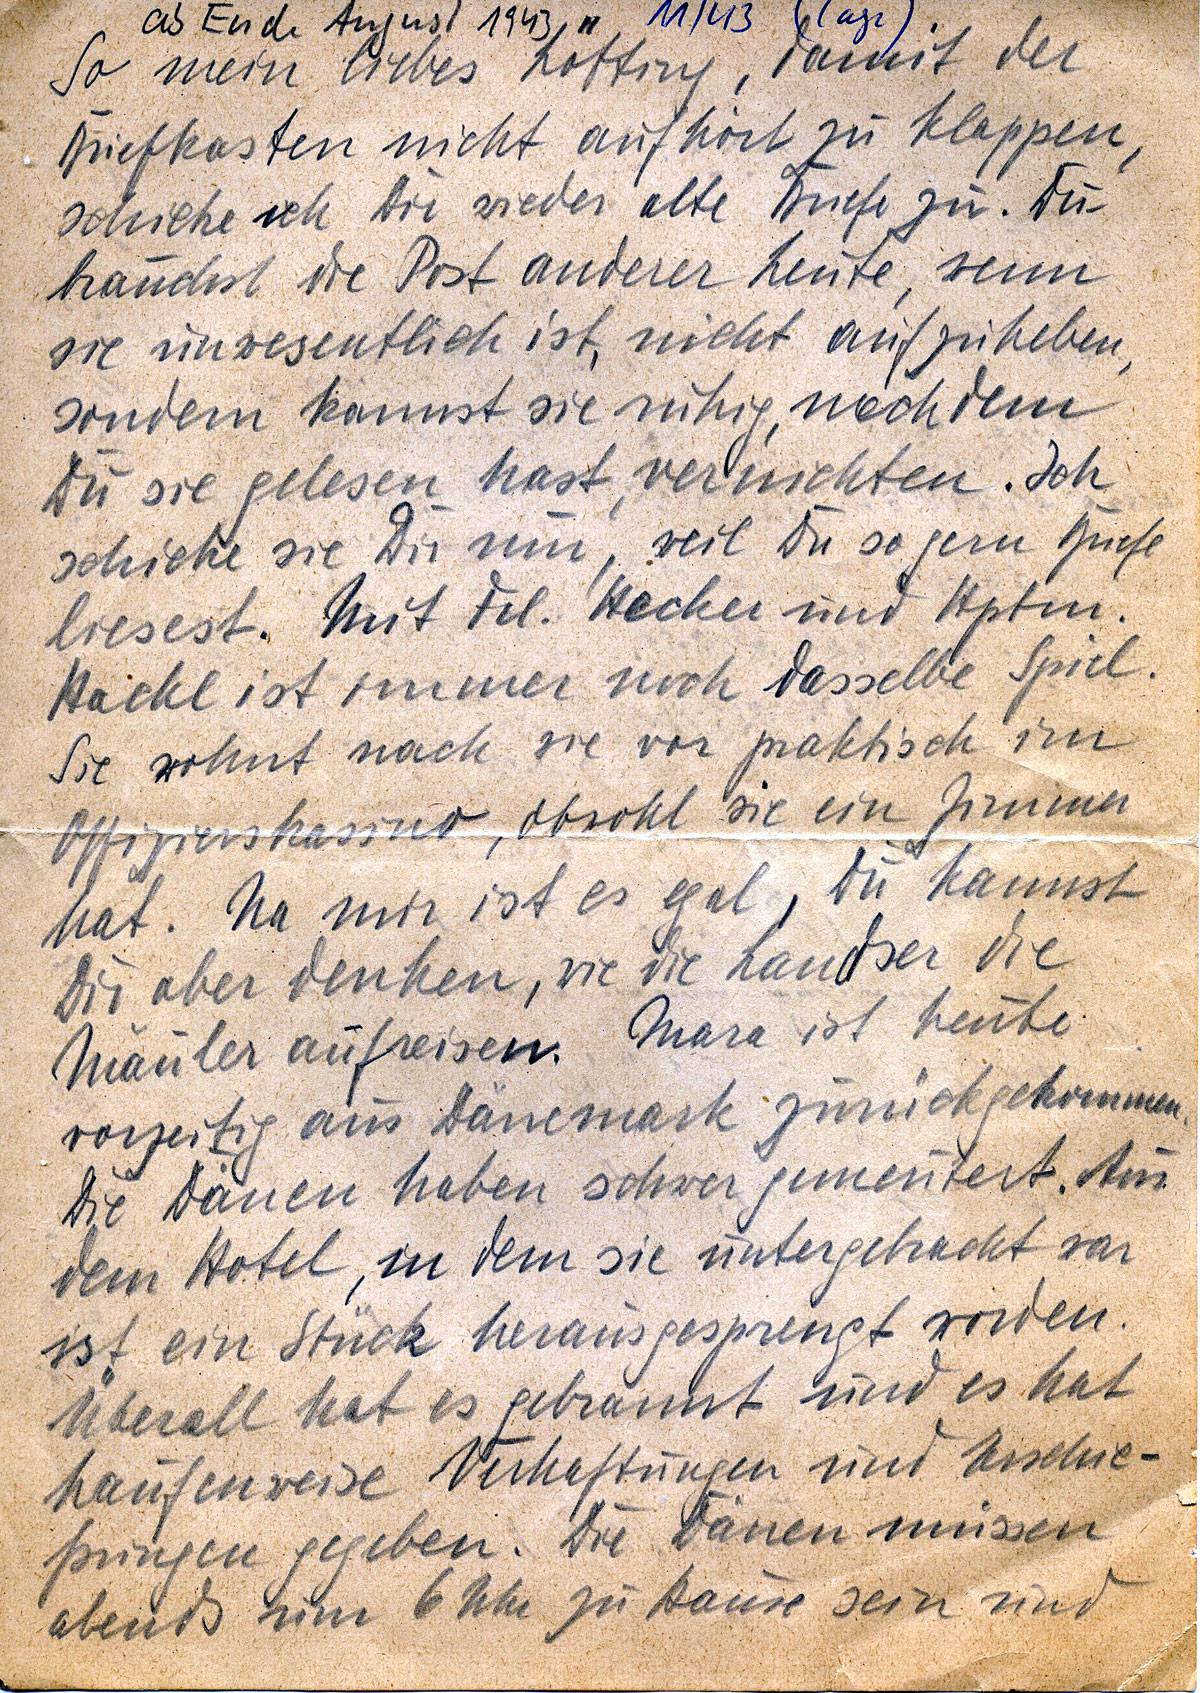 ab Ende August 1943 " 11/43 (Lage).
So mein liebes Lotting, damit der
Briefkasten nicht aufhört zu klappen,
schicke ich Dir wieder alte Briefe zu. Du
brauchst die Post anderer Leute, wenn
sie unwesentlich ist, nicht aufzuheben,
sondern kannst sie ruhig, nachdem
Du sie gelesen hast, vernichten. Ich
schicke sie Dir nur, weil Du so gern Briefe
liesest. Mit Frl. Hecker und Hptm.
Hackl ist immer noch dasselbe Spiel.
Sie wohnt nach wie vor praktisch im
Offizierskasino, obwohl sie ein Zimmer
hat. Na mir ist es egal, Du kannst
Dir aber denken, wie die Landser die
Mäuler aufreisen. Mara ist heute
vorzeitig aus Dänemark zurückgekommen.
Die Dänen haben schwer gemeutert. Aus
dem Hotel, in dem sie untergebracht war
ist ein Stück herausgesprengt worden.
Überall hat es gebrannt und es hat
haufenweise Verhaftungen und Erschie-
ßungen gegeben. Die Dänen müssen
abends um 6 Uhr zu Hause sein und